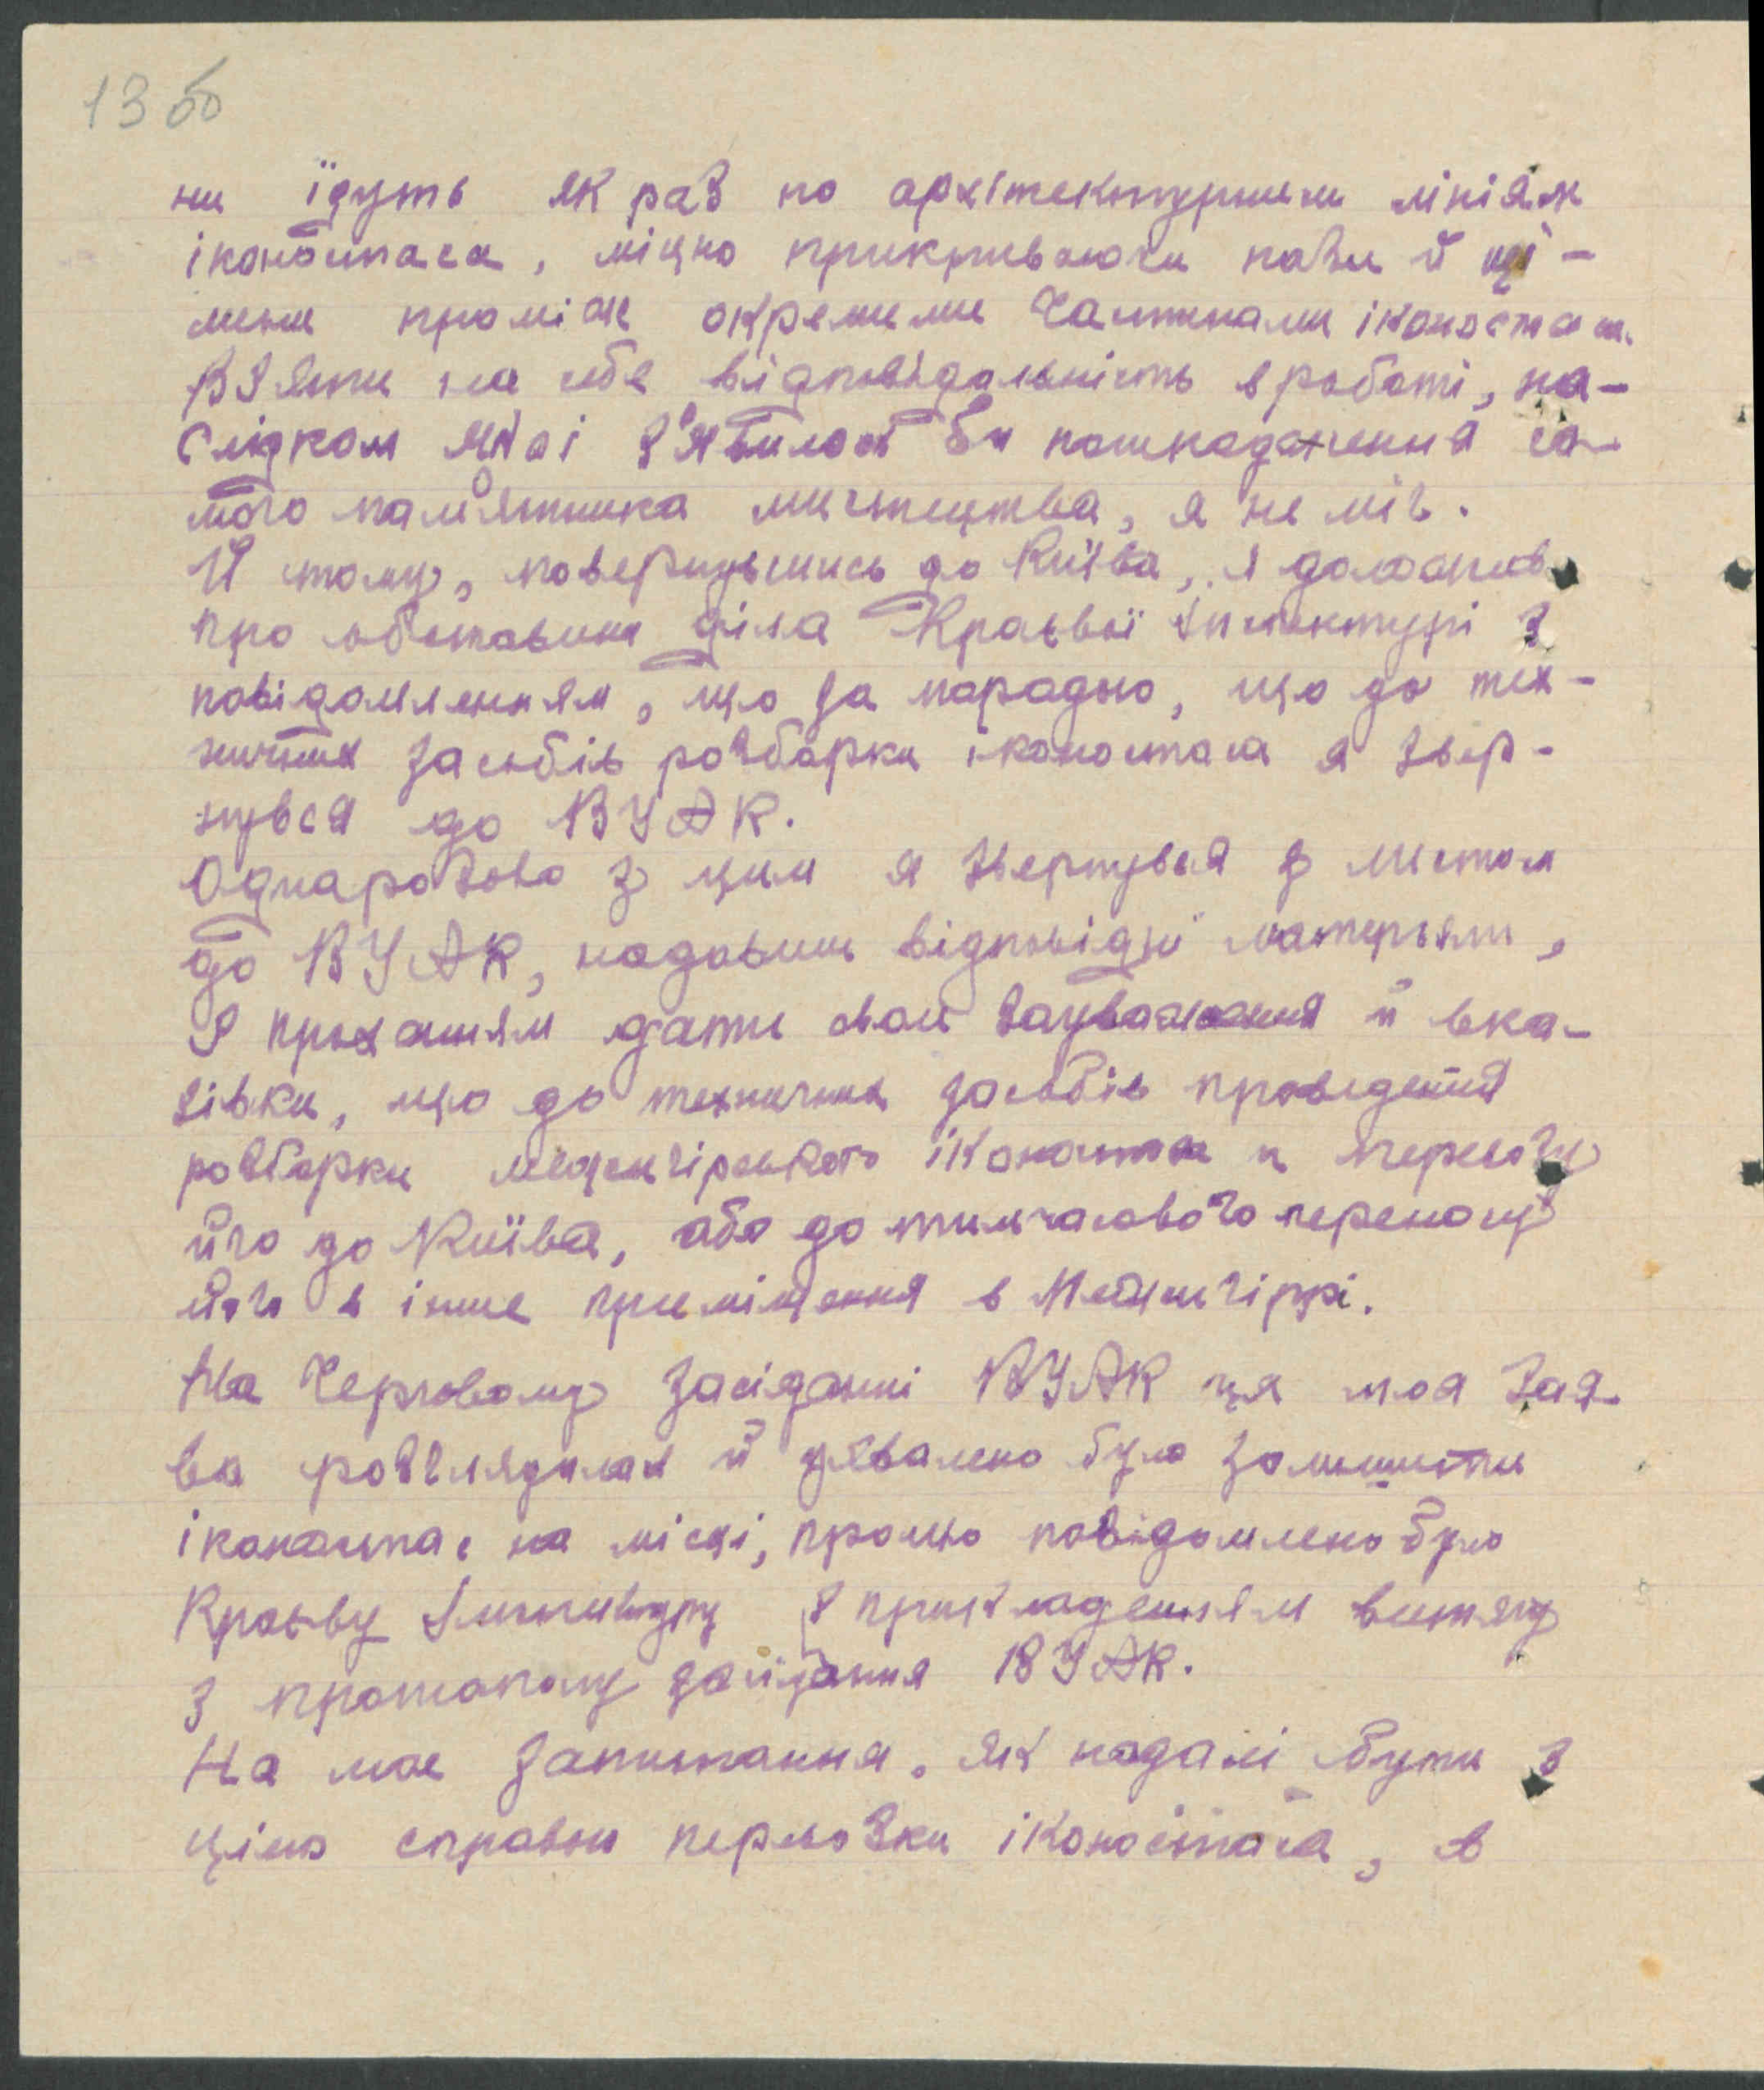 13 об
ни їдуть як раз по архітектурним лініям
іконостаса, міцно прикриваючи пази й щі-
лини проміж окремими частинами іконостаса.
Взяти на себе відповідальність в роботі, на-
слідком якої з'явилось би пошкодження са-
мого пам'ятника мистецтва, я не міг.
Й тому, повернувшись до Київа, я доложив
про обставини діла Краєвої Інспектурі з
повідомленням, що за порадою, що до тех-
ничних засобів розборки іконостаса я звер-
нувся до ВУАК.
Одноразово з цим я звернувся з листом
до ВУАК, надавши відповідні матерьяли,
з проханням дати свои зауваження й вка-
зівки, що до техничних засобів проведення
розборки межигірського іконостаса и перевозу
його до Київа, або до тимчасового переносу
його в інше приміщення в Межигіррі.
На черговому засіданні ВУАК ця моя зая-
ва розглядалась й ухвалено було залишити
іконостас на місці, про що повідомлено було
Краєву Інспектуру з прикладенням витягу
з протоколу засідання ВУАК.
На моє запитання, як надалі бути з
цією справою перевозки іконостаса, в